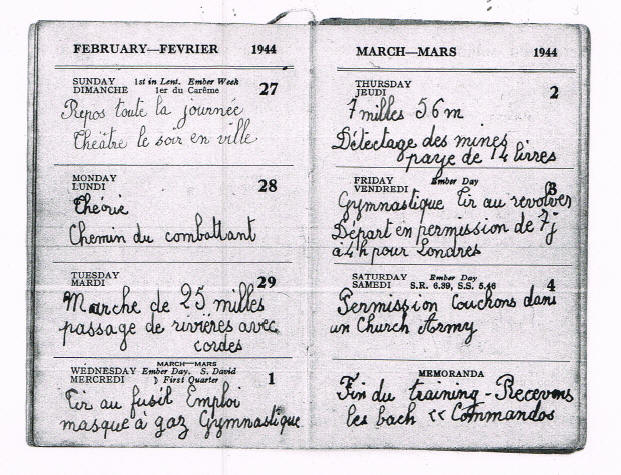 FEBRUARY—FEVRIER 1944
SUNDAY 1st in Lent. Ember Week
DIMANCHE 1er du Carême 27
Repos toute la journée
Théâtre le soir en ville
MONDAY
LUNDI 28
Théorie
Chemin du combattant
TUESDAY
MARDI 29
Marche de 25 milles
passage de rivières avec
cordes
MARCH—MARS
WEDNESDAY Ember Day. S. David
MERCREDI ☽ First Quarter 1
Tir au fusil Emploi
masque à gaz Gymnastique
MARCH—MARS 1944
THURSDAY
JEUDI 2
7 milles 56m
Détectage des mines
paye de 14 livres
FRIDAY Ember Day
VENDREDI 3
Gymnastique Tir au revolver
Départ en permission de 7j
à 4h pour Londres
SATURDAY Ember Day
SAMEDI S.R. 6.39, S.S. 5.46 4
Permission Couchons dans
un Church Army
MEMORANDA
Fin du training - Recevons
les bach << Commandos